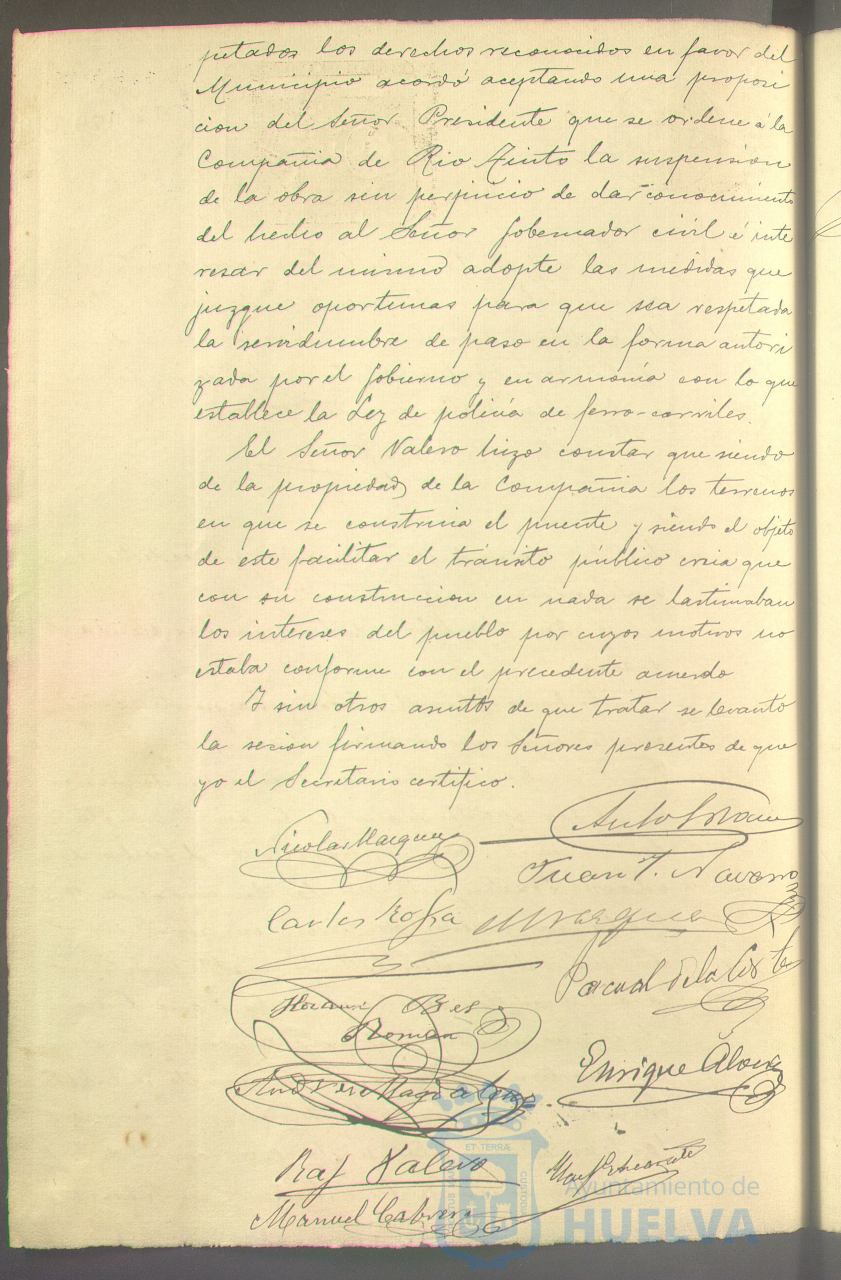 petados los derechos reconocidos en favor del
Municipio acordó aceptando una proposi
cion del Señor Presidente que se ordene á la
Compañia de Rio Tinto la suspensión
de la obra sin perjuicio de dar conocimiento
del hecho al Señor Gobernador civil é inte
resar del mismo adopte las medidas que
juzgue oportunas para que sea respetada
la servidumbre de paso en la forma autori
zada por el Gobierno y en armonía con lo que
establece la Ley de policía de ferro-carriles.
El Señor Valero hizo constar que siendo
de la propiedad de la Compañia los terrenos
en que se construia el puente y siendo el objeto
de este facilitar el tránsito público creia que
con su construccion en nada se lastimaban
los intereses del pueblo por cuyos motivos no
estaba conforme con el precedente acuerdo
Y sin otros asuntos de que tratar se levantó
la sesion firmando los Señores presentes de que
yo el Secretario certifico.
Nicolas Marquez
Juan T. Navarro
Carlos
Pascual de la
Roman
Enrique
Andres
Raf Valero
Manuel Cabrera
ET TERRÆ
CUSTODIA
Ayuntamiento de
HUELVA